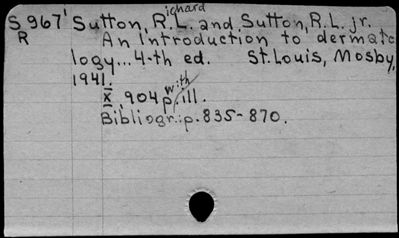 S 967' Sutton, Richard L. and Sutton, R.L. jr.
R An introduction to dermato
logy... 4-th ed. St. Louis, Mosby,
1941.
x, 904 p. with ill.
Bibliogr.: p. 835-870.